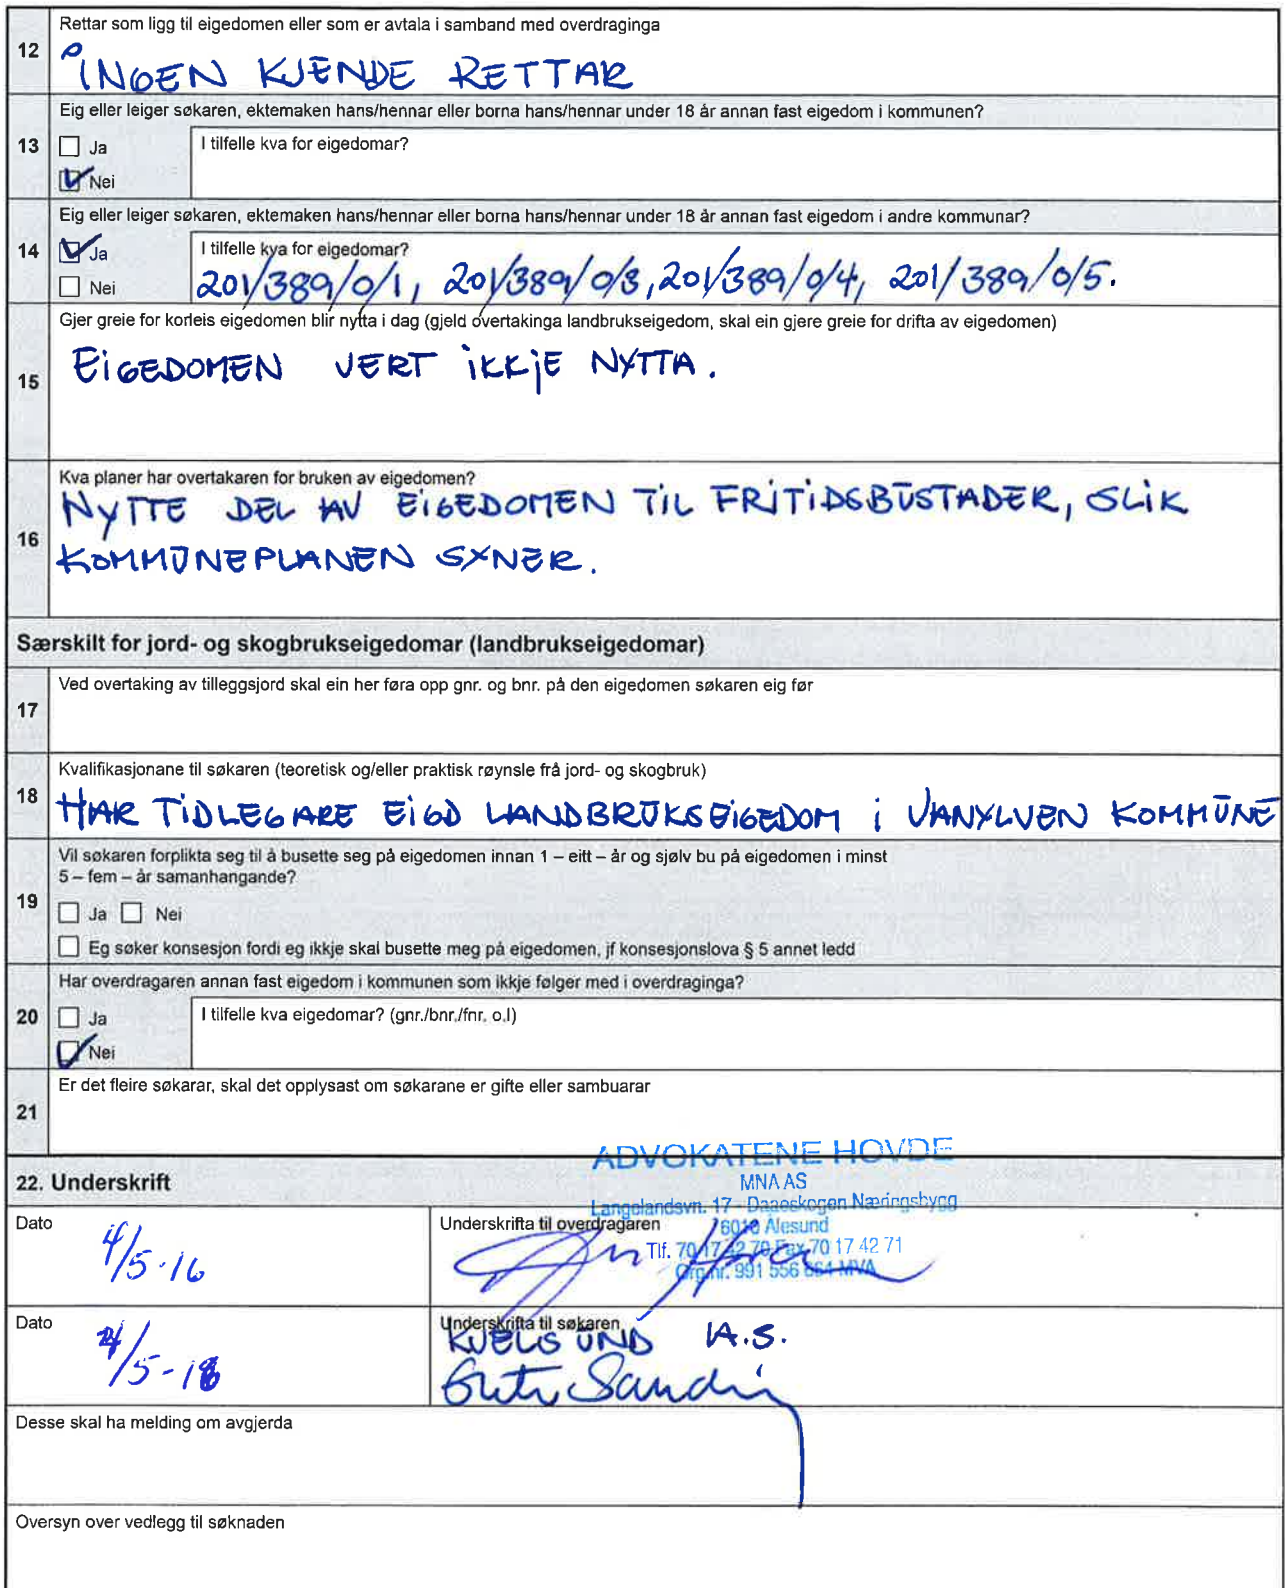 12 Rettar som ligg til eigedomen eller som er avtala i samband med overdraginga
INGEN KJENDE RETTAR
Eig eller leiger søkaren, ektemaken hans/hennar eller borna hans/hennar under 18 år annan fast eigedom i kommunen?
13 Ja I tilfelle kva for eigedomar?
Nei
Eig eller leiger søkaren, ektemaken hans/hennar eller borna hans/hennar under 18 år annan fast eigedom i andre kommunar?
14 Ja I tilfelle kva for eigedomar?
Nei 201/389/0/1, 201/389/0/3, 201/389/0/4, 201/389/0/5.
Gjer greie for korleis eigedomen blir nytta i dag (gjeld overtakinga landbrukseigedom, skal ein gjere greie for drifta av eigedomen)
15 EIGEDOMEN VERT IKKJE NYTTA.
Kva planer har overtakaren for bruken av eigedomen?
NYTTE DEL AV EIGEDOMEN TIL FRITIDSBUSTADER, SLIK
16 KOMMUNEPLANEN SYNER.
Særskilt for jord- og skogbrukseigedomar (landbrukseigedomar)
Ved overtaking av tilleggsjord skal ein her føra opp gnr. og bnr. på den eigedomen søkaren eig før
17
Kvalifikasjonane til søkaren (teoretisk og/eller praktisk røynsle frå jord- og skogbruk)
18 HAR TIDLEGARE EIGD LANDBRUKSEIGEDOM I VANYLVEN KOMMUNE
Vil søkaren forplikta seg til å busette seg på eigedomen innan 1 – eitt – år og sjølv bu på eigedomen i minst
5 – fem – år samanhangande?
19 Ja Nei
Eg søker konsesjon fordi eg ikkje skal busette meg på eigedomen, jf konsesjonslova § 5 annet ledd
Har overdragaren annan fast eigedom i kommunen som ikkje følger med i overdraginga?
20 Ja I tilfelle kva eigedomar? (gnr./bnr./fnr. o.l)
Nei
Er det fleire søkarar, skal det opplysast om søkarane er gifte eller sambuarar
21
ADVOKATENE HOVDE
MNA AS
Langelandsvn. 17 - Daaeskogen Næringsbygg
6010 Ålesund
Tlf. 70 17 42 70 Fax 70 17 42 71
Org.nr. 991 556 664 MVA
22. Underskrift
Dato Underskrifta til overdragaren
4/5-16
Dato Underskrifta til søkaren
KJELSUND A.S.
Desse skal ha melding om avgjerda
Oversyn over vedlegg til søknaden